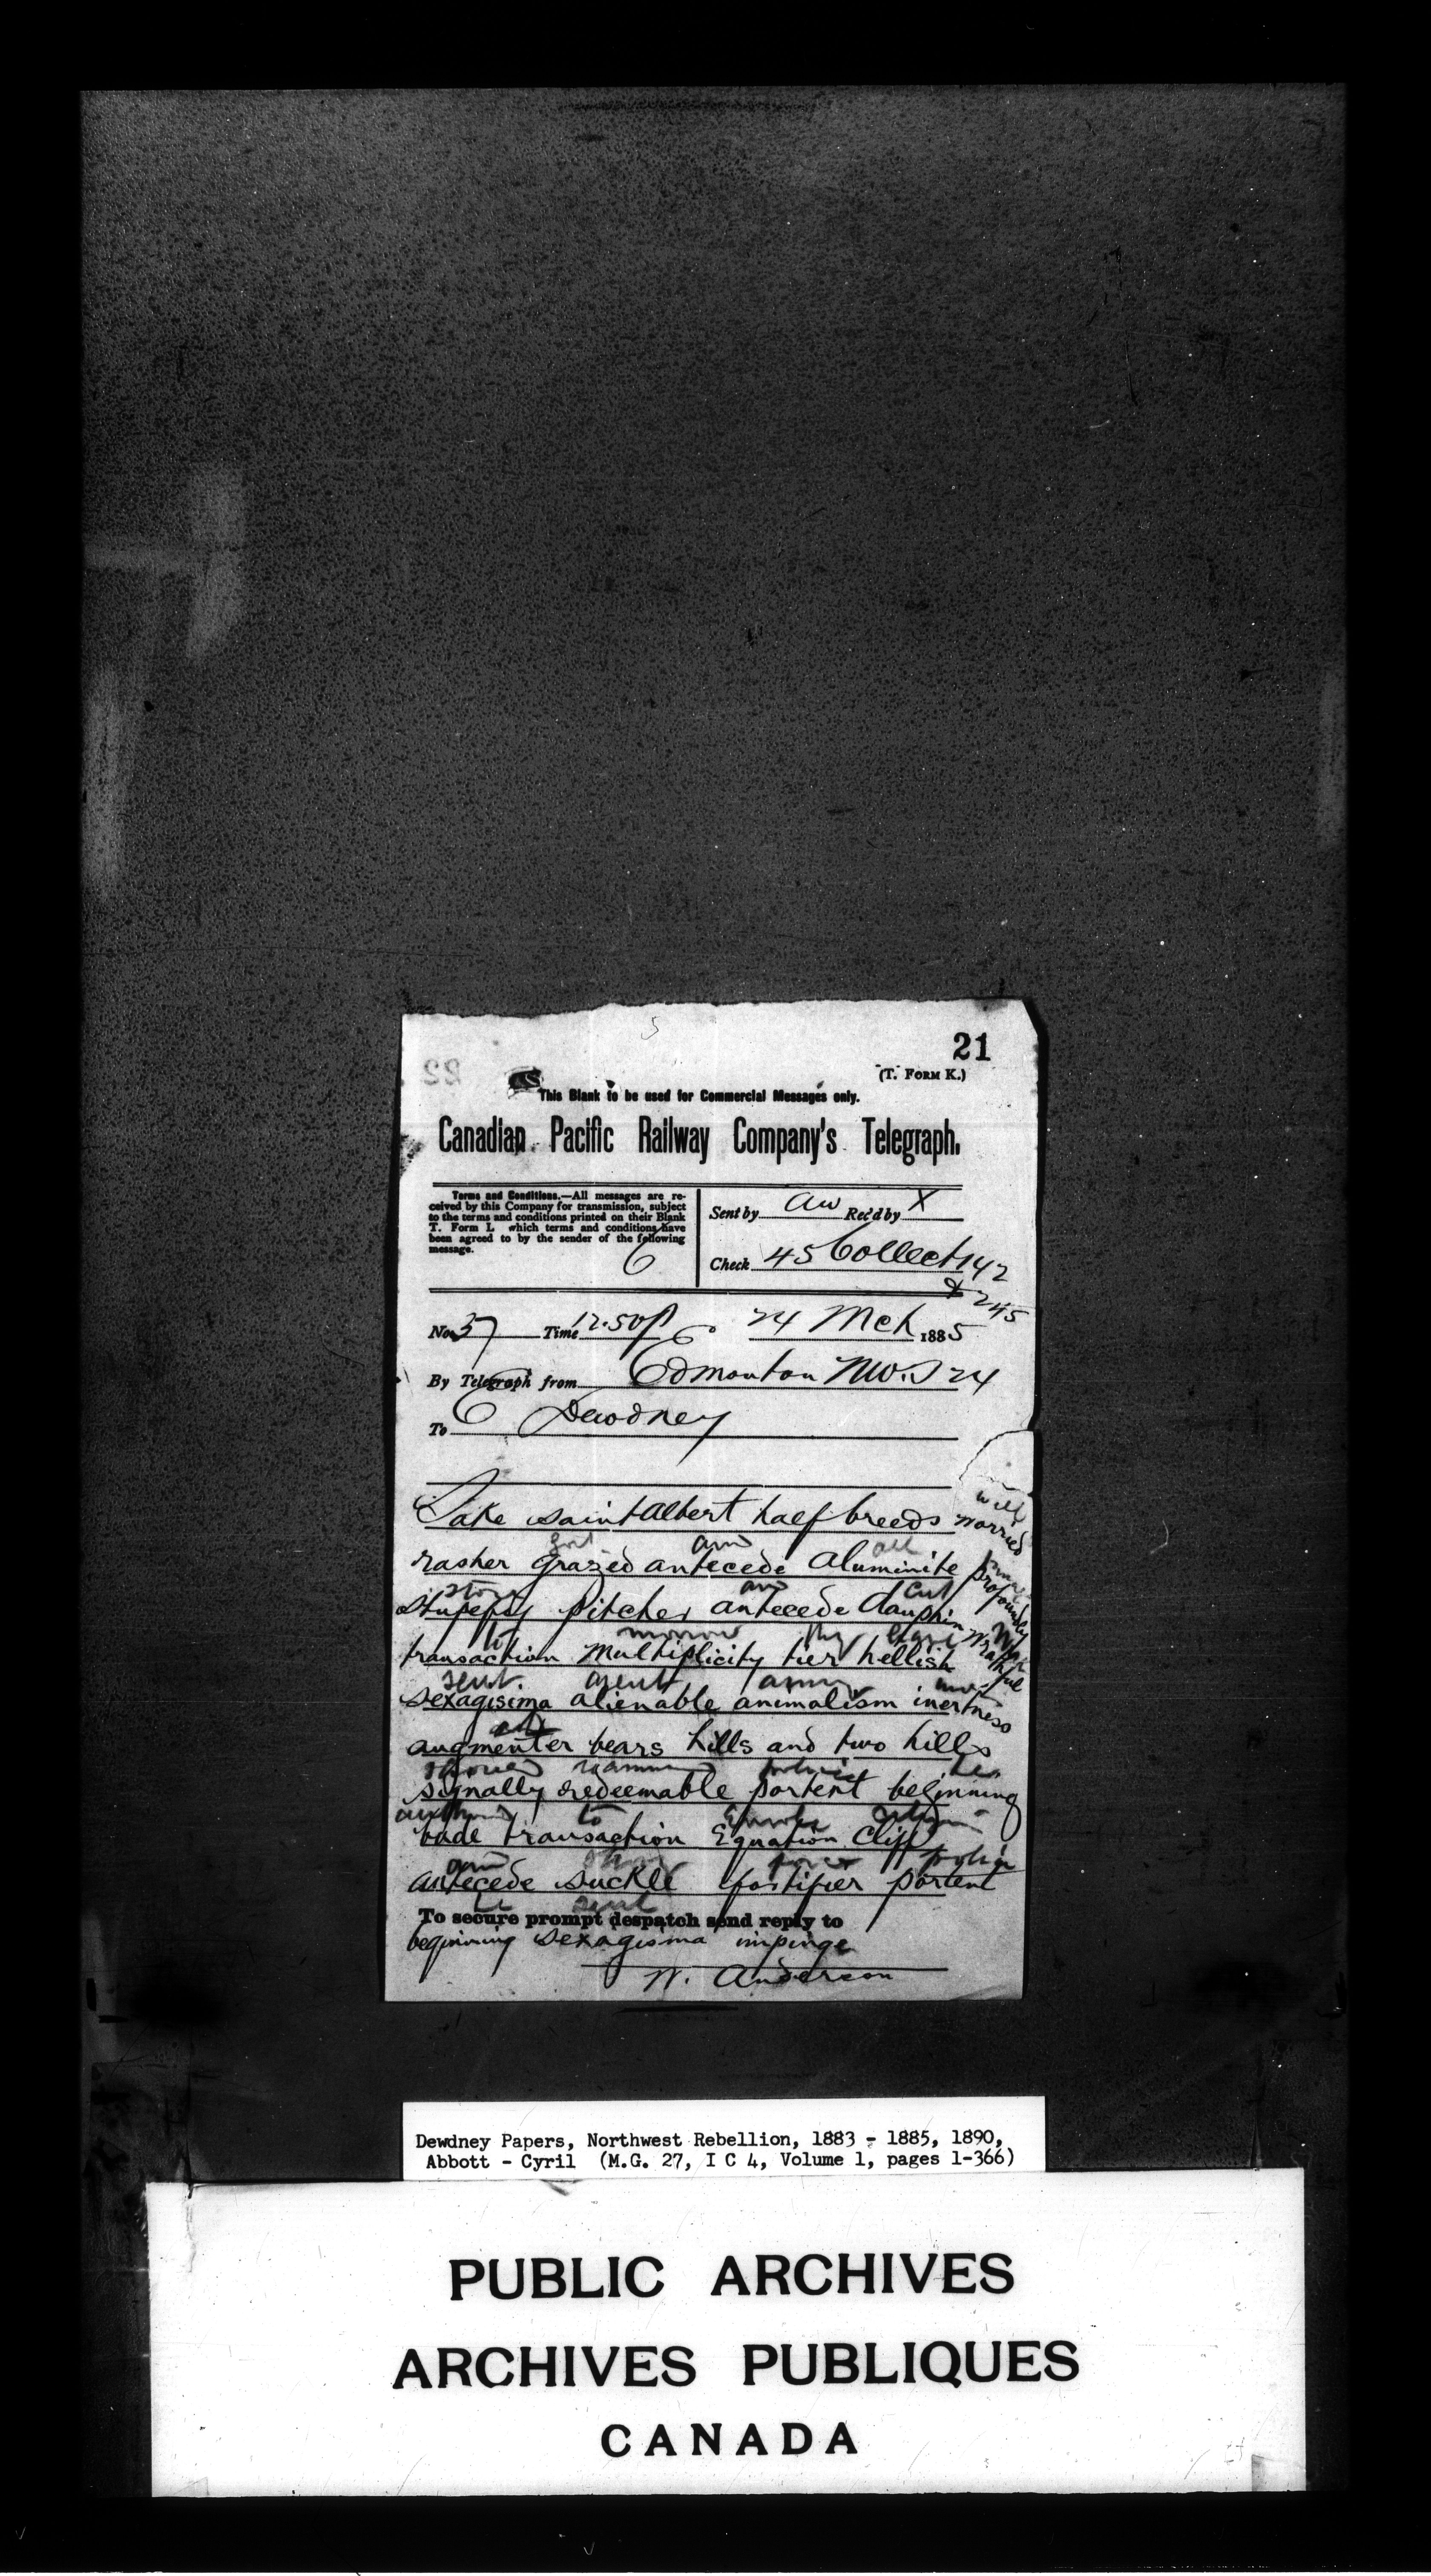 21
(T. FORM K.)
This Blank to be used for Commercial Messages only.
Canadian Pacific Railway Company's Telegraph.
Terms and Conditions.—All messages are re-
ceived by this Company for transmission, subject
to the terms and conditions printed on their Blank
T. Form I. which terms and conditions have
been agreed to by the sender of the following
message.
Sent by aw Rec'd by X
Check 45 Collect 142
& 245
No. 37 Time 12.50p 24 Mch 1885
By Telegraph from Edmonton NW.T 24
To E Dewdney
will
Lake saint albert half breeds worried
and all
rasher grazed antecede aluminite profoundly
store and cut
stupefy pitcher antecede dauphin wrathful
to morrow
transaction multiplicity tier hellish
sent. agent
sexagisima alienable animalism inertness
augmenter bears hills and two hills
be
signally redeemable portent beginning
to
bade transaction Equation Cliff
and police
antecede suckle fortifier portent
be send
To secure prompt despatch send reply to
beginning sexagisma impinge
W. Anderson
Dewdney Papers, Northwest Rebellion, 1883 - 1885, 1890,
Abbott - Cyril (M.G. 27, I C 4, Volume 1, pages 1-366)
PUBLIC ARCHIVES
ARCHIVES PUBLIQUES
CANADA